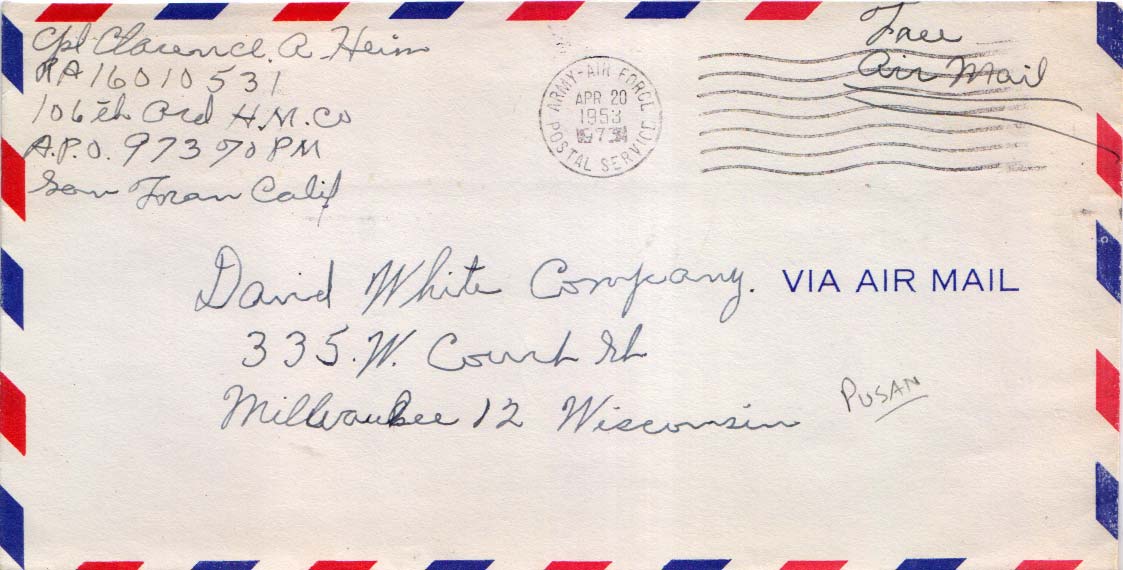 Cpl Clarence. A. Heim
RA 16010531
106th Ord H.M. Co
A.P.O. 973 % PM
San Fran Calif
ARMY-AIR FORCE
APR 20
1953
973
POSTAL SERVICE
Free
Air Mail
David White Company.
VIA AIR MAIL
335. W. Court St
Millwaukee 12 Wisconsin
PUSAN